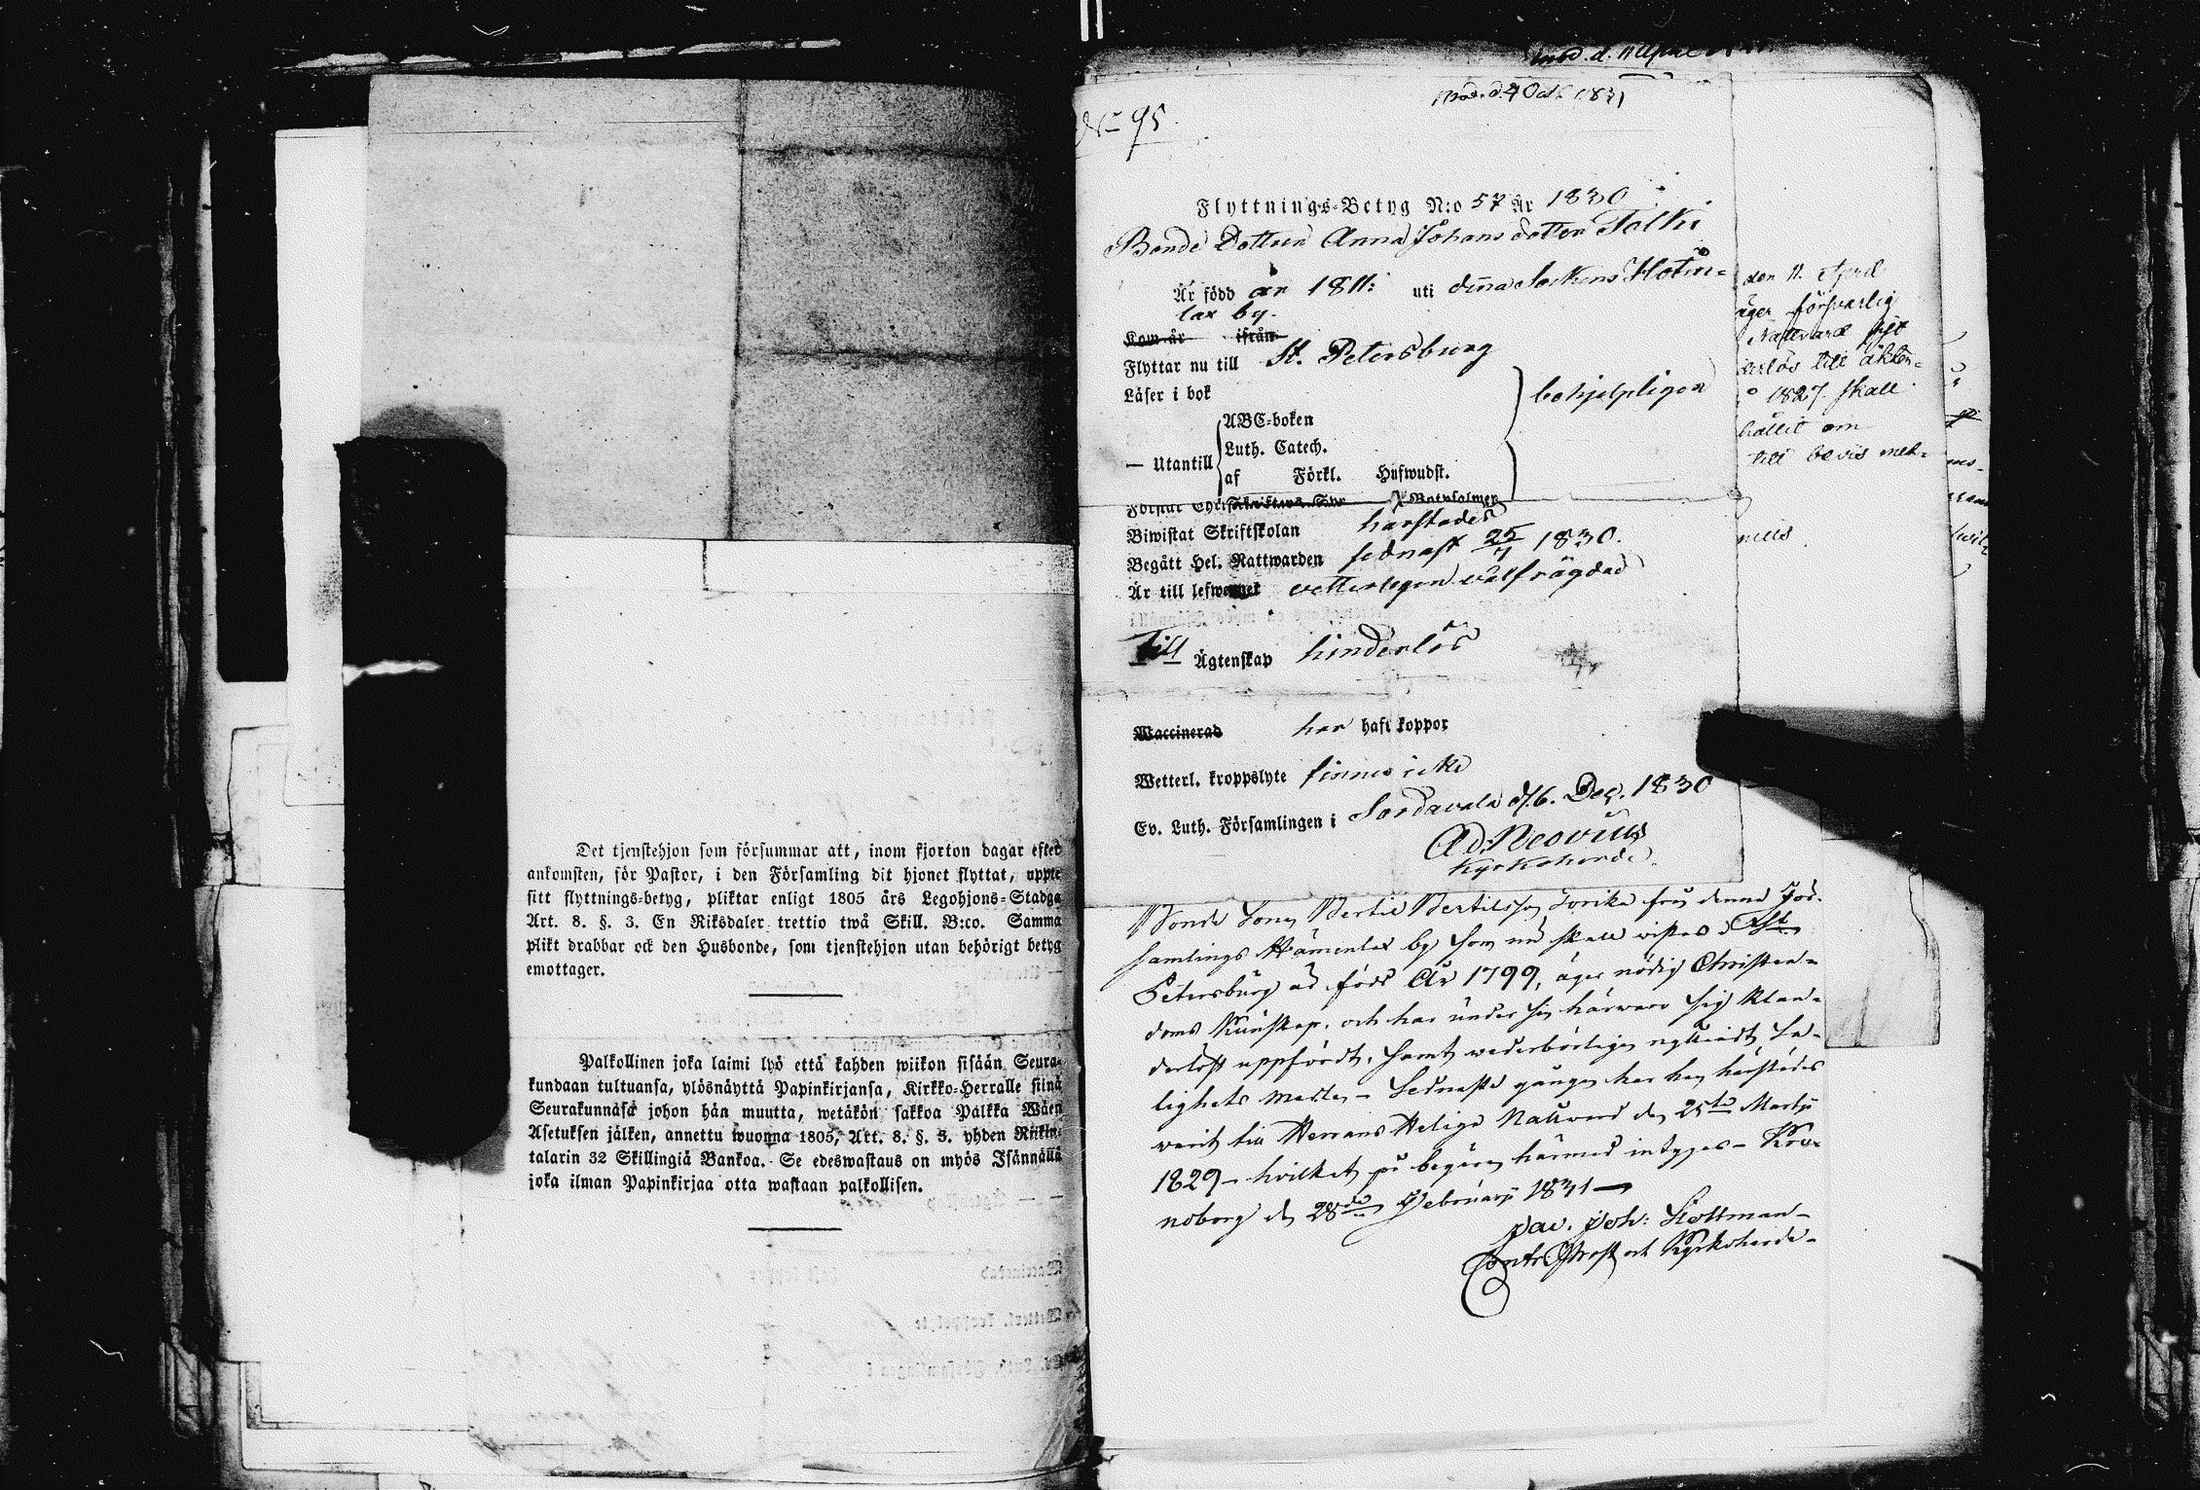 Det tjenstehjon som försummar att, inom fjorton dagar efter
ankomsten, för Pastor, i den Församling dit hjonet flyttat, uppte
sitt flyttnings-betyg, pliktar enligt 1805 års Legohjons-Stadga
Art. 8. §. 3. En Riksdaler trettio twå Skill. B:co. Samma
plikt drabbar ock den Husbonde, som tjenstehjon utan behörigt betyg
emottager.
Palkollinen joka laimi lyö että kahden wiikon sisään Seura-
kundaan tultuansa, ylösnäyttä Papinkirjansa, Kirkko-Herralle siinä
Seurakunnasa johon hän muutta, wetäkön sakkoa Palkka Wäen
Asetuksen jälken, annettu wuonna 1805, Art. 8. §. 3. yhden Riikin-
talarin 32 Skillingiä Bankoa. Se edeswastaus on myös Isännällä
joka ilman Papinkirjaa otta wastaan palkollisen.
Prod. d. 4 Oct. 1831
No 95
Flyttnings-Betyg N:o 57 År 1830
Bonde Dottren Anna Johans dotter Tolki
Är född år 1811: uti denna Sockens
lax by.
Kom år ifrån
Flyttar nu till St. Petersburg
Läser i bok
behjelpligen
— Utantill
ABC-boken
Luth. Catech.
af Förkl. Hufwudst.
Botpsalmer
Biwistat Skriftskolan härstädes
Begått Hel. Nattwarden sednast 25/7 1830.
Är till lefwernet vetterligen välfrägdad
Till Ägtenskap hinderlös
Waccinerad har haft koppor
Wetterl. kroppslyte finnes icke
Ev. Luth. Församlingen i Sordavala d. 6. Dec. 1830
Ad. Neovius
Kyrkoherde.
den 11. April
äger försvarlig
Nattvard
till äkten-
1827. skall
hållit om
till bevis med-
Bonde Sonen Bertil Bertilsson från denna För-
samlings by som nu skall vistas i St.
Petersburg är född År 1799, äger nödig Christen-
doms Kunskap, och har under sin härvaro sig klan-
derlöst uppfördt, samt wederbörligen
lighets – Sednaste gången har han härstädes
warit till Herrans Heliga Nattvard den 25te Martii
1829 – hvilket på begäran härmed intygas – Kro-
noborg den 28de Februarii 1831 –
Joh:
Contr. Prost och Kyrkoherde –